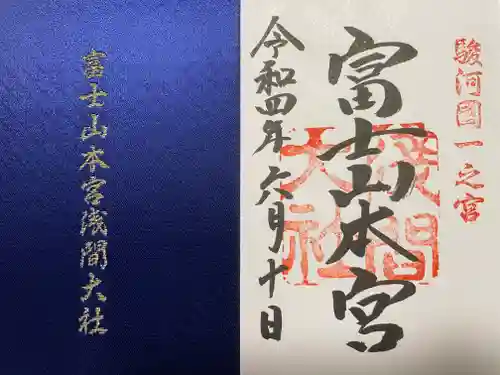 富士山本宮浅間大社
駿河國一之宮
富士山本宮
浅間大社
令和四年六月十日